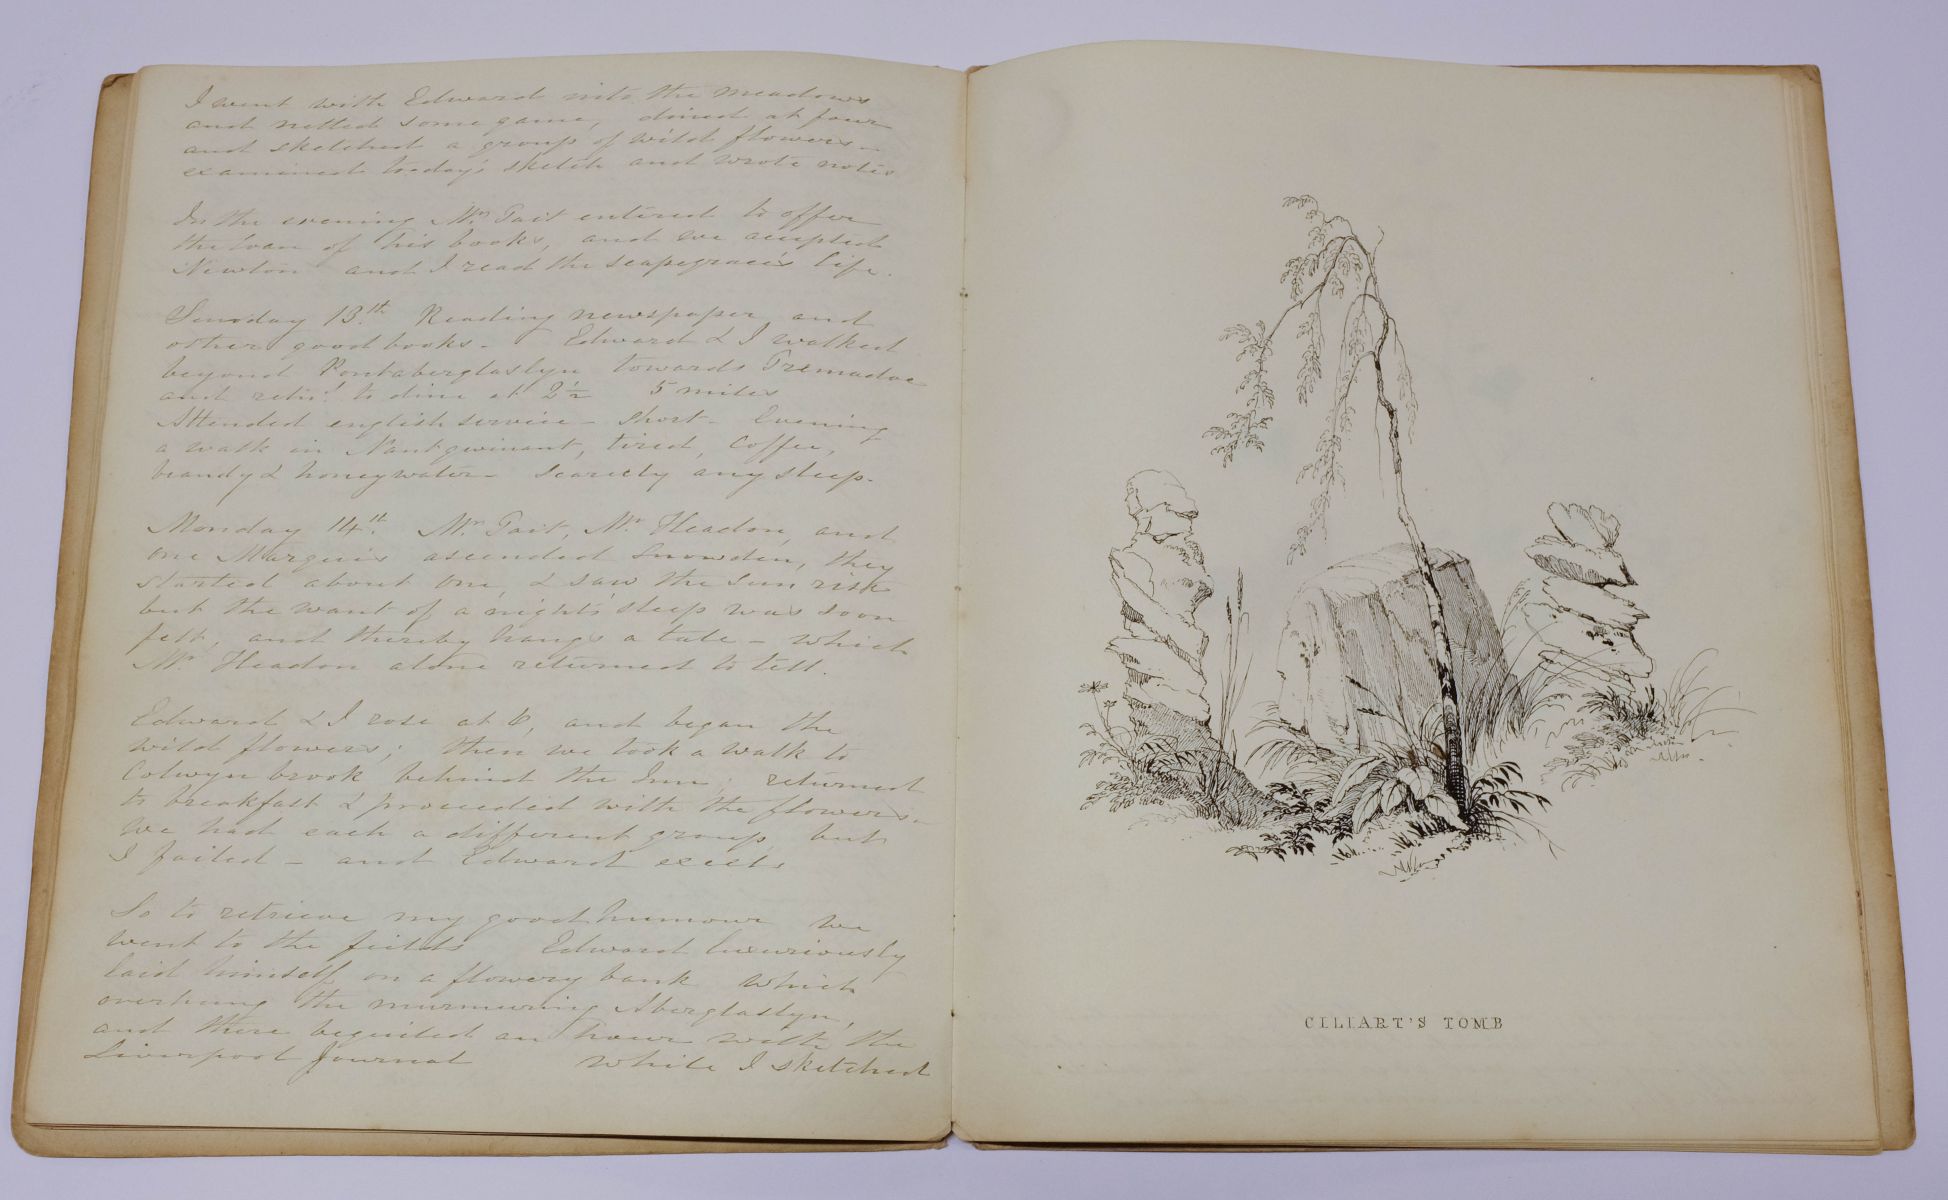 I went with Edward into the meadows
and netted some game, dined at four
and sketched a group of wild flowers –
examined today's sketch and wrote notes
In the evening Mr. Tait entered to offer
the loan of his books, and we accepted
Newton and I read the scapegrace's life.
Sunday 13th. Reading newspaper and
other good books – Edward & I walked
beyond Pontaberglaslyn towards Tremadoc
and retd. to dine at 2½ 5 miles
Attended english service – short – Evening
a walk in Nantgwinant, tired, Coffee,
brandy & honeywater – Scarcely any sleep.
Monday 14th. Mr. Tait, Mr. Headon, and
one Marquis ascended Snowden, they
started about one, & saw the Sun rise
but the want of a night's sleep was soon
felt, and thereby hangs a tale – which
Mr. Headon alone returned to tell.
Edward & I rose at 6, and began the
wild flowers; then we took a walk to
Colwyn brook behind the Inn; returned
to breakfast & proceeded with the flowers –
we had each a different group, but
I failed – and Edward excels
So to retrieve my good humour we
went to the fields Edward luxuriously
laid himself on a flowery bank which
overhung the murmuring Aberglaslyn,
and there beguiled an hour with the
Liverpool Journal while I sketched
CILIART'S TOMB